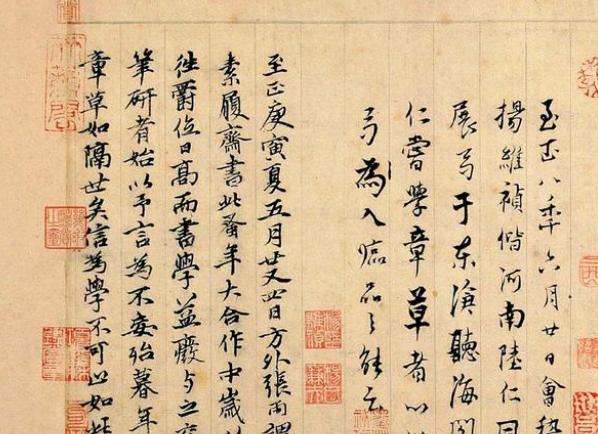 至正八年六月廿日會稽
楊維禎偕河南陸仁同
展于東滄聽海閣
仁嘗學章草者以
為入臨品之能云
至正庚寅夏五月廿又四日方外張雨謂
素履齋書此蚤年大合作中歲以
往爵位日高而書學益廢与之交
筆研者始以予言為不妄殆暮年
章草如隔世矣信為學不可以如此